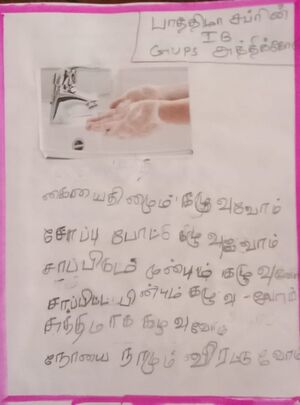 பாத்திமா சப்ரின்
I B
GMUPS அத்திக்கோ
கையைதினமும் கழுவுவோம்
சோப்பு போட்டு கழுவுவோம்
சாப்பிடும் முன்பும் கழுவுவோ
சாப்பிட்ட பின்பும் கழுவு-வோம்
சுத்தமாக கழுவுவோம்
நோயை நாமும் விரட்டுவோம்